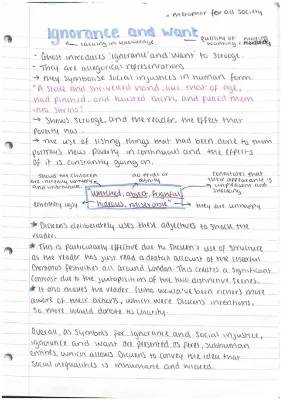 metaphor for all society
Ignorance and want
lacking in knowledge
- Ghost introduces 'Ignorance and want' to Scrooge.
- They are allegorical representations
→ they symbolise social injustices in human form.
"A stale and shrivelled hand, like that of age,
had pinched, and twisted them, and pulled them
into shreds"
→ Shows Scrooge, and the reader, the effect that
poverty has
→ The use of listing things that had been done to them
portrays how poverty is continuous and the effects
of it is constantly going on.
shows the children
no pride or
connotates that
are literally unhappy
their appearance is
and underweight
unpleasant and
shocking
"wretched, abject, frightful
hideous, miserable"
literally ugly
they are unhappy
* Dickens deliberately uses these adjectives to shock the
reader.
* This is particularly effective due to Dickens's use of structure
as the reader has just read a detailed account of the cheerful
Christmas festivities all around London. This creates a significant
contrast due to the juxtaposition of the two different scenes.
* It also makes the reader (who would've been richer) more
aware of their actions, which were Dickens' intentions,
so more would donate to charity.
Overall, as symbols for ignorance and social injustice,
ignorance and want are presented as feral, subhuman
entities, which allows Dickens to convey the idea that
social inequalities is inhumane and